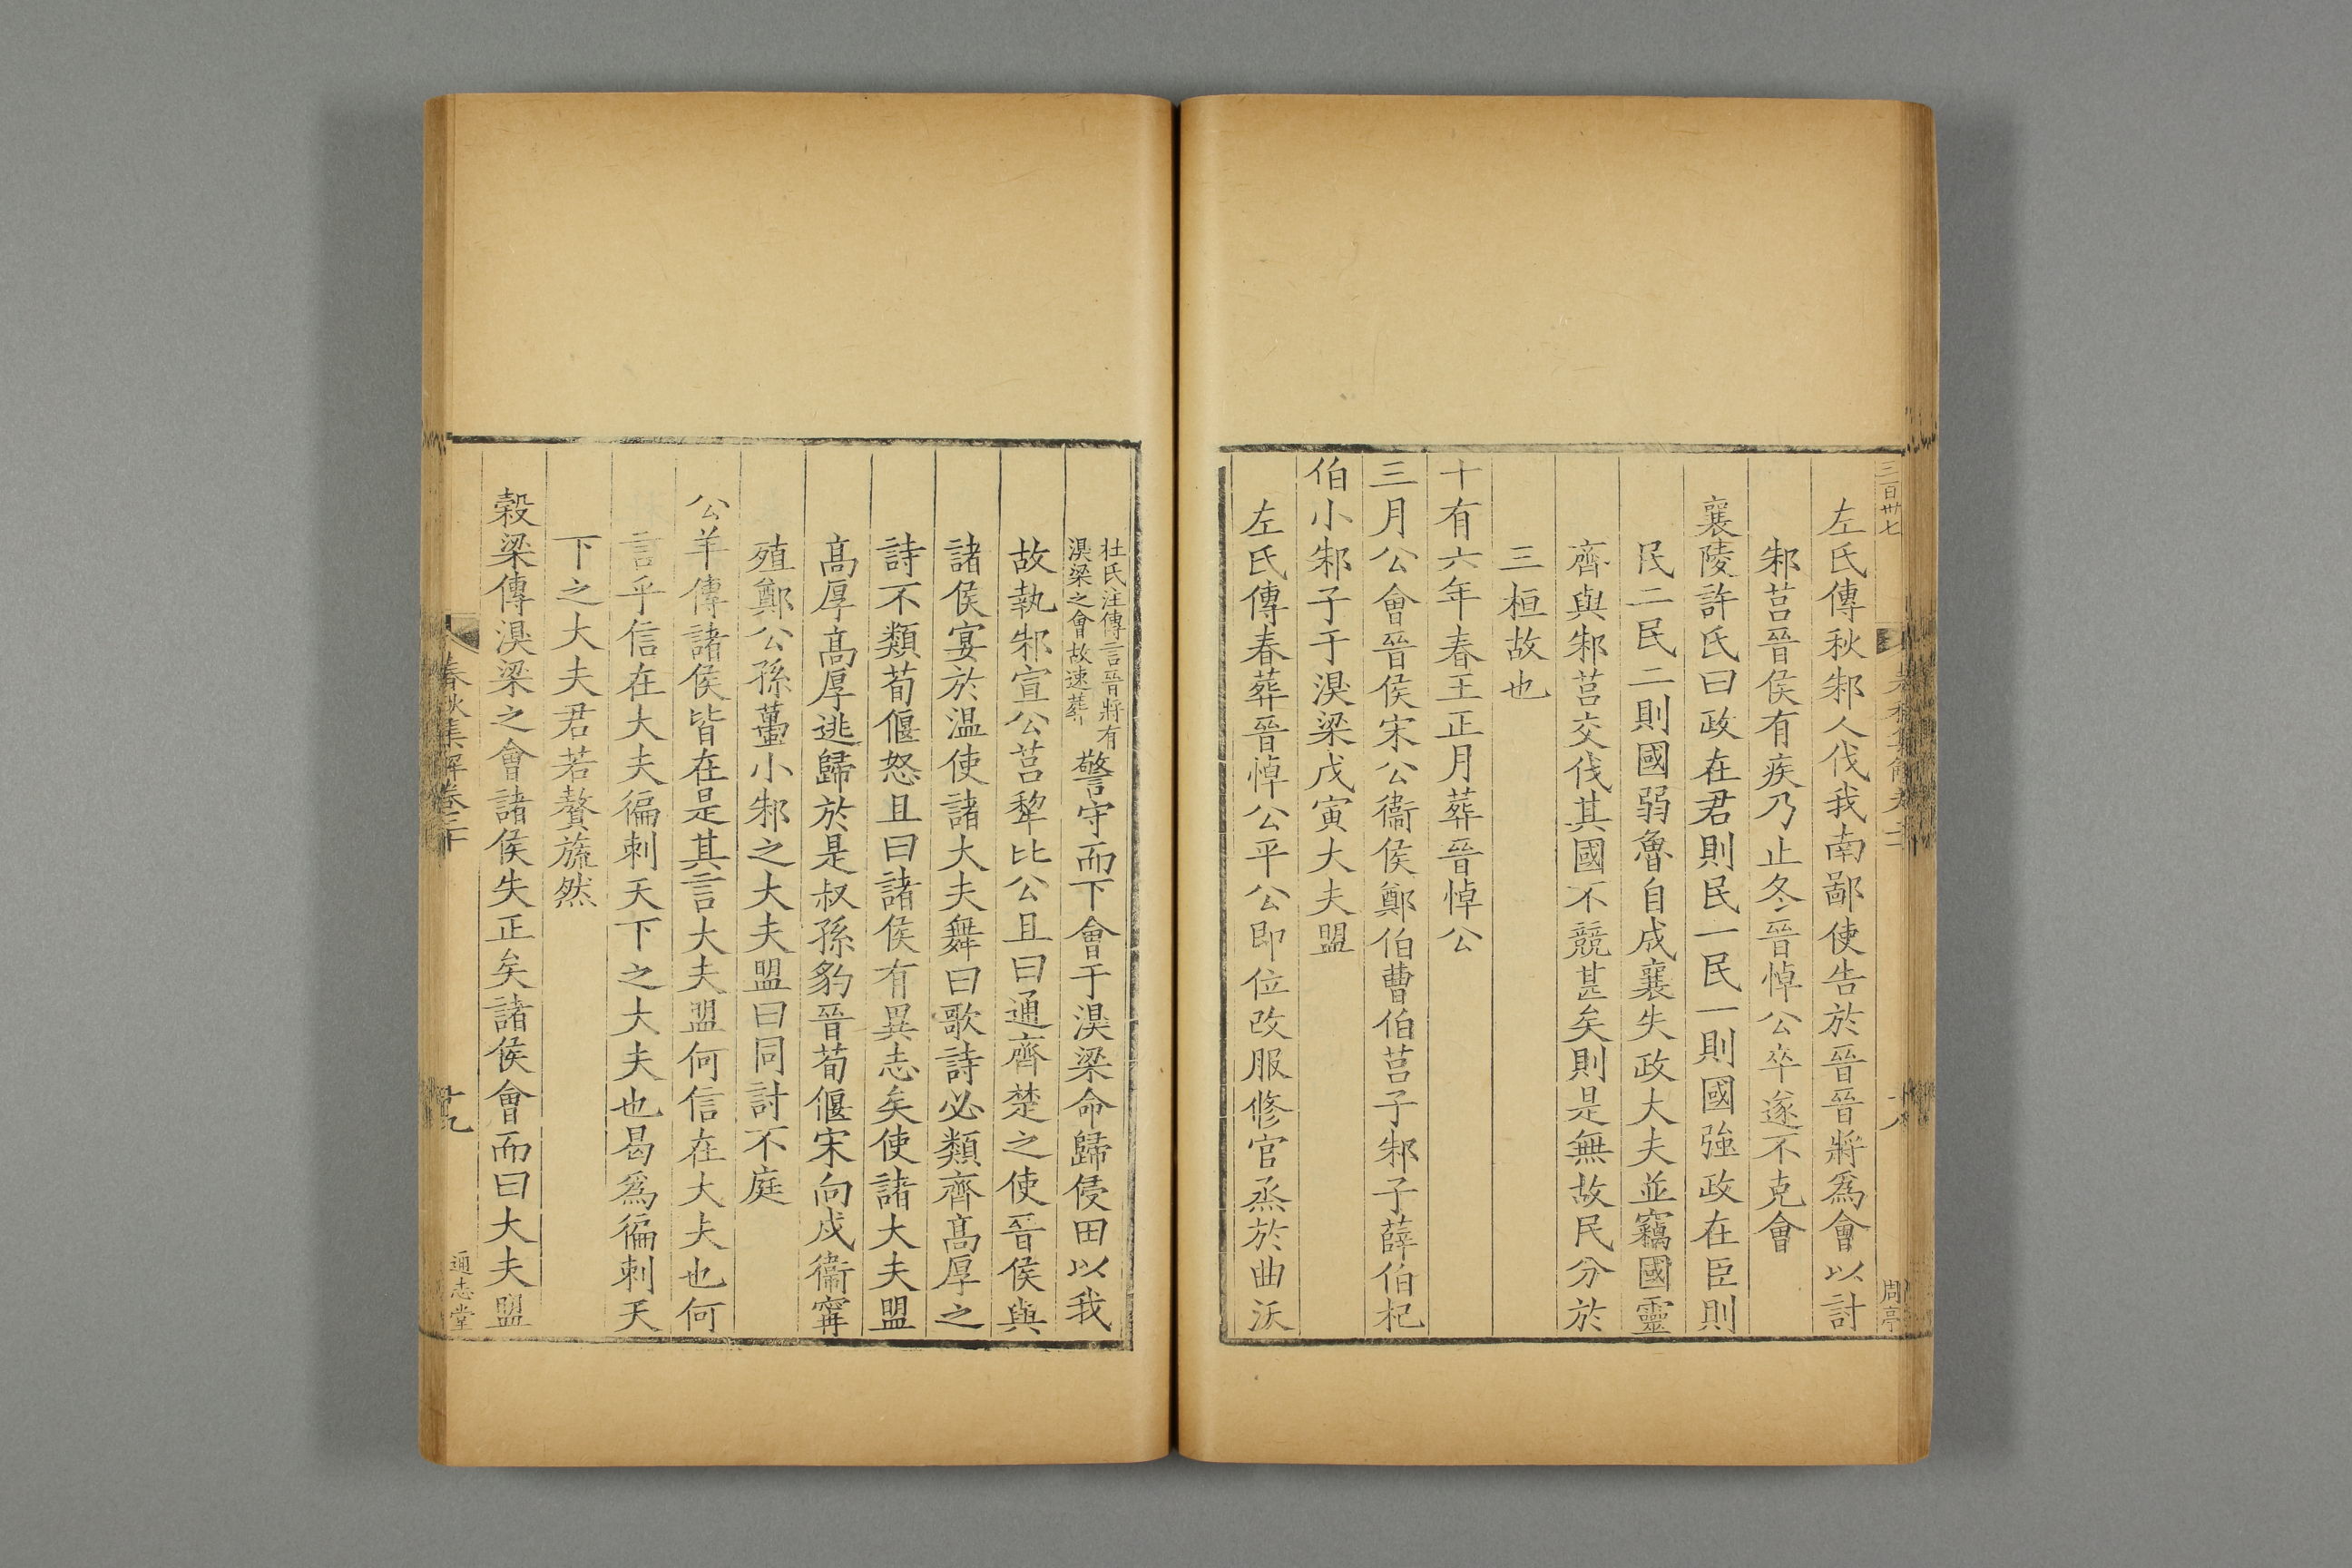 三百卅七
左氏傳秋邾人伐我南鄙使告於晉晉將爲會以討
邾莒晉侯有疾乃止冬晉悼公卒遂不克會
襄陵許氏曰政在君則民一民一則國強政在臣則
民二民二則國弱魯自成襄失政大夫並竊國靈
齊與邾莒交伐其國不競甚矣則是無故民分於
三桓故也
十有六年春王正月葬晉悼公
三月公會晉侯宋公衞侯鄭伯曹伯莒子邾子薛伯杞
伯小邾子于湨梁戊寅大夫盟
左氏傳春葬晉悼公平公即位改服修官烝於曲沃
杜氏注傳言晉將有
湨梁之會故速葬
警守而下會于湨梁命歸侵田以我
故執邾宣公莒犂比公且曰通齊楚之使晉侯與
諸侯宴於温使諸大夫舞曰歌詩必類齊高厚之
詩不類荀偃怒且曰諸侯有異志矣使諸大夫盟
高厚高厚逃歸於是叔孫豹晉荀偃宋向戍衞甯
殖鄭公孫蠆小邾之大夫盟曰同討不庭
公羊傳諸侯皆在是其言大夫盟何信在大夫也何
言乎信在大夫徧刺天下之大夫也曷爲徧刺天
下之大夫君若贅旒然
穀梁傳湨梁之會諸侯失正矣諸侯會而曰大夫盟
春秋集解卷二十
十九
通志堂